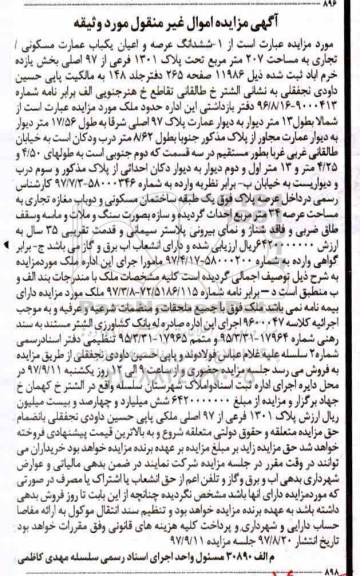 ۸۹۶
آگهی مزایده اموال غیر منقول مورد وثیقه
مورد مزایده عبارت است از ۱-ششدانگ عرصه و اعیان یکباب عمارت مسکونی /
تجاری به مساحت ۲۰۷ متر مربع تحت پلاک ۱۳۰۱ فرعی از ۹۷ اصلی بخش یازده
خرم اباد ثبت شده ذیل ۱۱۹۸۶ صفحه ۲۶۵ دفترجلد ۱۴۸ به مالکیت پاپی حسین
داودی نجفقلی به نشانی الشتر خ طالقانی تقاطع خ هنرجنوبی الف برابر نامه شماره
۹۶/۸/۱۶-۹۰۰۰۴۱۳ دفتر بازداشتی این اداره حدود ملک مورد مزایده عبارت است از
شمالا بطول۱۳ متر دیوار به دیوار عمارت پلاک ۹۷ اصلی شرقا به طول ۱۷/۵۶ متر دیوار
به دیوار عمارت مجاور از پلاک مذکور جنوبا بطول ۸/۶۲ متر درب ودکان است به خیابان
طالقانی غربی غربا بطور مستقیم در سه قسمت که دوم جنوبی است به طولهای ۴/۵۰ و
۴/۲۵ متر و ۱۳ متر اول و دوم دیوار به دیوار دکان احداثی از پلاک مذکور و سوم درب
و دیواریست به خیابان ب- برابر نظریه وارده به شماره ۵۸۰۰۰۳۴۶-۹۷/۷/۳ کارشناس
رسمی درداخل عرصه پلاک فوق یک طبقه ساختمان مسکونی و دوباب مغازه تجاری به
مساحت عرصه ۲۴ متر مربع احداث گردیده و سازه بصورت سنگ و ملات و ماسه وسقف
طاق ضربی و فاقد شناژ و نمای بیرونی پلاستر سیمانی و قدمت تقریبی ۳۵ سال به
ارزش ۶۴۲۰۰۰۰۰۰۰ریال ارزیابی شده و دارای انشعاب اب برق و گاز می باشد ج- برابر
گواهی وارده به شماره ۵۸۰۰۰۲۰۰-۹۷/۴/۱۷ مامورا جرای این اداره ملک موردمزایده
به شرح ذیل توصیف اجمالی گردیده است کلیه مشخصات ملک با مندرجات بند الف و
ب منطبق است د - برابر نامه شماره ۷۲/۵۱۸۶/۱۱۵-۹۷/۳/۸ ملک مورد مزایده دارای
بیمه نامه نمی باشد ملک فوق با جمیع ملحقات و منضمات شرعیه و عرفیه و به موجب
اجرائیه کلاسه ۹۶۰۰۰۴۷ اجرای این اداره صادره له بانک کشاورزی الشتر مستند به سند
رهنی شماره ۱۷۹۶۴-۹۵/۳/۳۱ و متمم ۱۷۹۶۵-۹۵/۳/۳۱ تنظیمی دفتر اسنادرسمی
شماره۲ سلسله علیه غلام عباس فولادوند و پاپی حسین داودی نجفقلی از طریق مزایده
به فروش می رسد جلسه مزایده حضوری و از ساعت ۹ الی ۱۲ روز یکشنبه ۹۷/۹/۱۱ در
محل دایره اجرای اداره ثبت اسنادواملاک شهرستان سلسله واقع در الشتر خ کهمان خ
جهاد برگزار و مزایده از مبلغ ۶۴۲۰۰۰۰۰۰۰ شش میلیارد و چهارصد و بیست میلیون
ریال ارزش پلاک ۱۳۰۱ فرعی از ۹۷ اصلی ملکی پاپی حسین داودی نجفقلی بانضمام
حق مزایده متعلقه و حقوق دولتی متعلقه شروع و به بالاترین قیمت پیشنهادی فروخته
خواهد شد حق مزایده زاید بر مبلغ مزایده بر عهده برنده مزایده خواهد بود خریداران می
توانند در وقت مقرر در جلسه مزایده شرکت نمایند در ضمن بدهی مالیاتی و عوارض
شهرداری بدهی اب و برق وگاز و تلفن اعم از حق انشعاب یا اشتراک یا مصرف در صورتی
که موردمزایده دارای انها باشد مشخص نگردیده چنانچه از این بابت تا روز فروش بدهی
داشته باشد به عهده برنده مزایده خواهد بود و تنظیم سند انتقال موکول به ارائه مفاصا
حساب دارایی و شهرداری و پرداخت کلیه هزینه های قانونی وفق مقررات خواهد بود
تاریخ انتشار ۹۷/۸/۲۰ جلسه مزایده ۹۷/۹/۱۱
م الف ۳۰۸۹۰ مسئول واحد اجرای اسناد رسمی سلسله مهدی کاظمی
۸۹۸